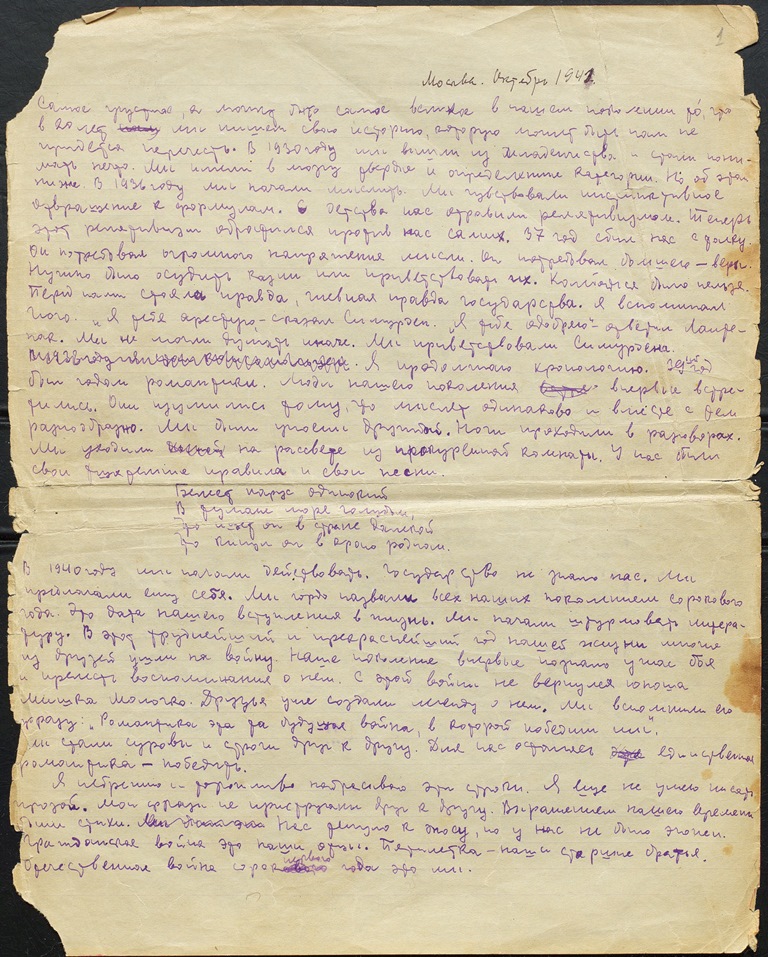 1
Москва. Октябрь 1941
Самое грустное, а может быть самое великое в нашем поколении то, что
в 20 лет мы пишем свою историю, которую может быть нам не
придётся перечесть. В 1930 году мы вышли из младенчества и стали пони-
мать нечто. Мы имели в мозгу твердые и определенные категории. Но об этом
ниже. В 1936 году мы начали мыслить. Мы чувствовали инстинктивное
отвращение к формулам. С детства нас отравили релятивизмом. Теперь
этот релятивизм обратился против нас самих. 37 год сбил нас с толку.
Он потребовал огромного напряжения мысли. Он потребовал большего – веры.
Нужно было осудить казни или приветствовать их. Колебаться было нельзя.
Перед нами стояла правда, гневная правда государства. Я вспоминал
Гюго. „Я тебя арестую, – сказал Симурдэн. „Я тебя одобряю" – ответил Ланте-
нак. Мы не могли думать иначе. Мы приветствовали Симурдэна.
Я продолжаю хронологию. Зей год
был годом романтики. Люди нашего поколения впервые встре-
тились. Они изумились тому, что мыслят одинаково и вместе с тем
разнообразно. Мы были упоены дружбой. Ночи проходили в разговорах.
Мы уходили на рассвете из прокуренной комнаты. У нас были
свои фихтеанские правила и свои песни.
Белеет парус одинокий
В тумане море голубом,
Что ищет он в стране далекой
Что кинул он в краю родном.
В 1940 году мы начали действовать. Государство не знало нас. Мы
предлагали ему себя. Мы гордо назвали всех наших поколением сорокового
года. Это дата нашего вступления в жизнь. Мы начали штурмовать литера-
туру. В этот труднейший и прекраснейший год нашей жизни многие
из друзей ушли на войну. Наше поколение впервые познало ужас боя
и прелесть воспоминания о нем. С этой войны не вернулся юноша
Мишка Молочко. Друзья уже создали легенду о нем. Мы вспомнили его
фразу: „Романтика это та будущая война, в которой победим мы".
Мы стали суровы и строги друг к другу. Для нас осталась единственная
романтика – победить.
Я небрежно и торопливо набрасываю эти строки. Я еще не умею писать
прозой. Мои фразы не пристроены друг к другу. Выражением нашего времени
были стихи. Нас тянуло к эпосу, но у нас не было эпопеи.
Гражданская война это наши отцы. Пятилетка – наши старшие братья.
Отечественная война сорок первого года это мы.